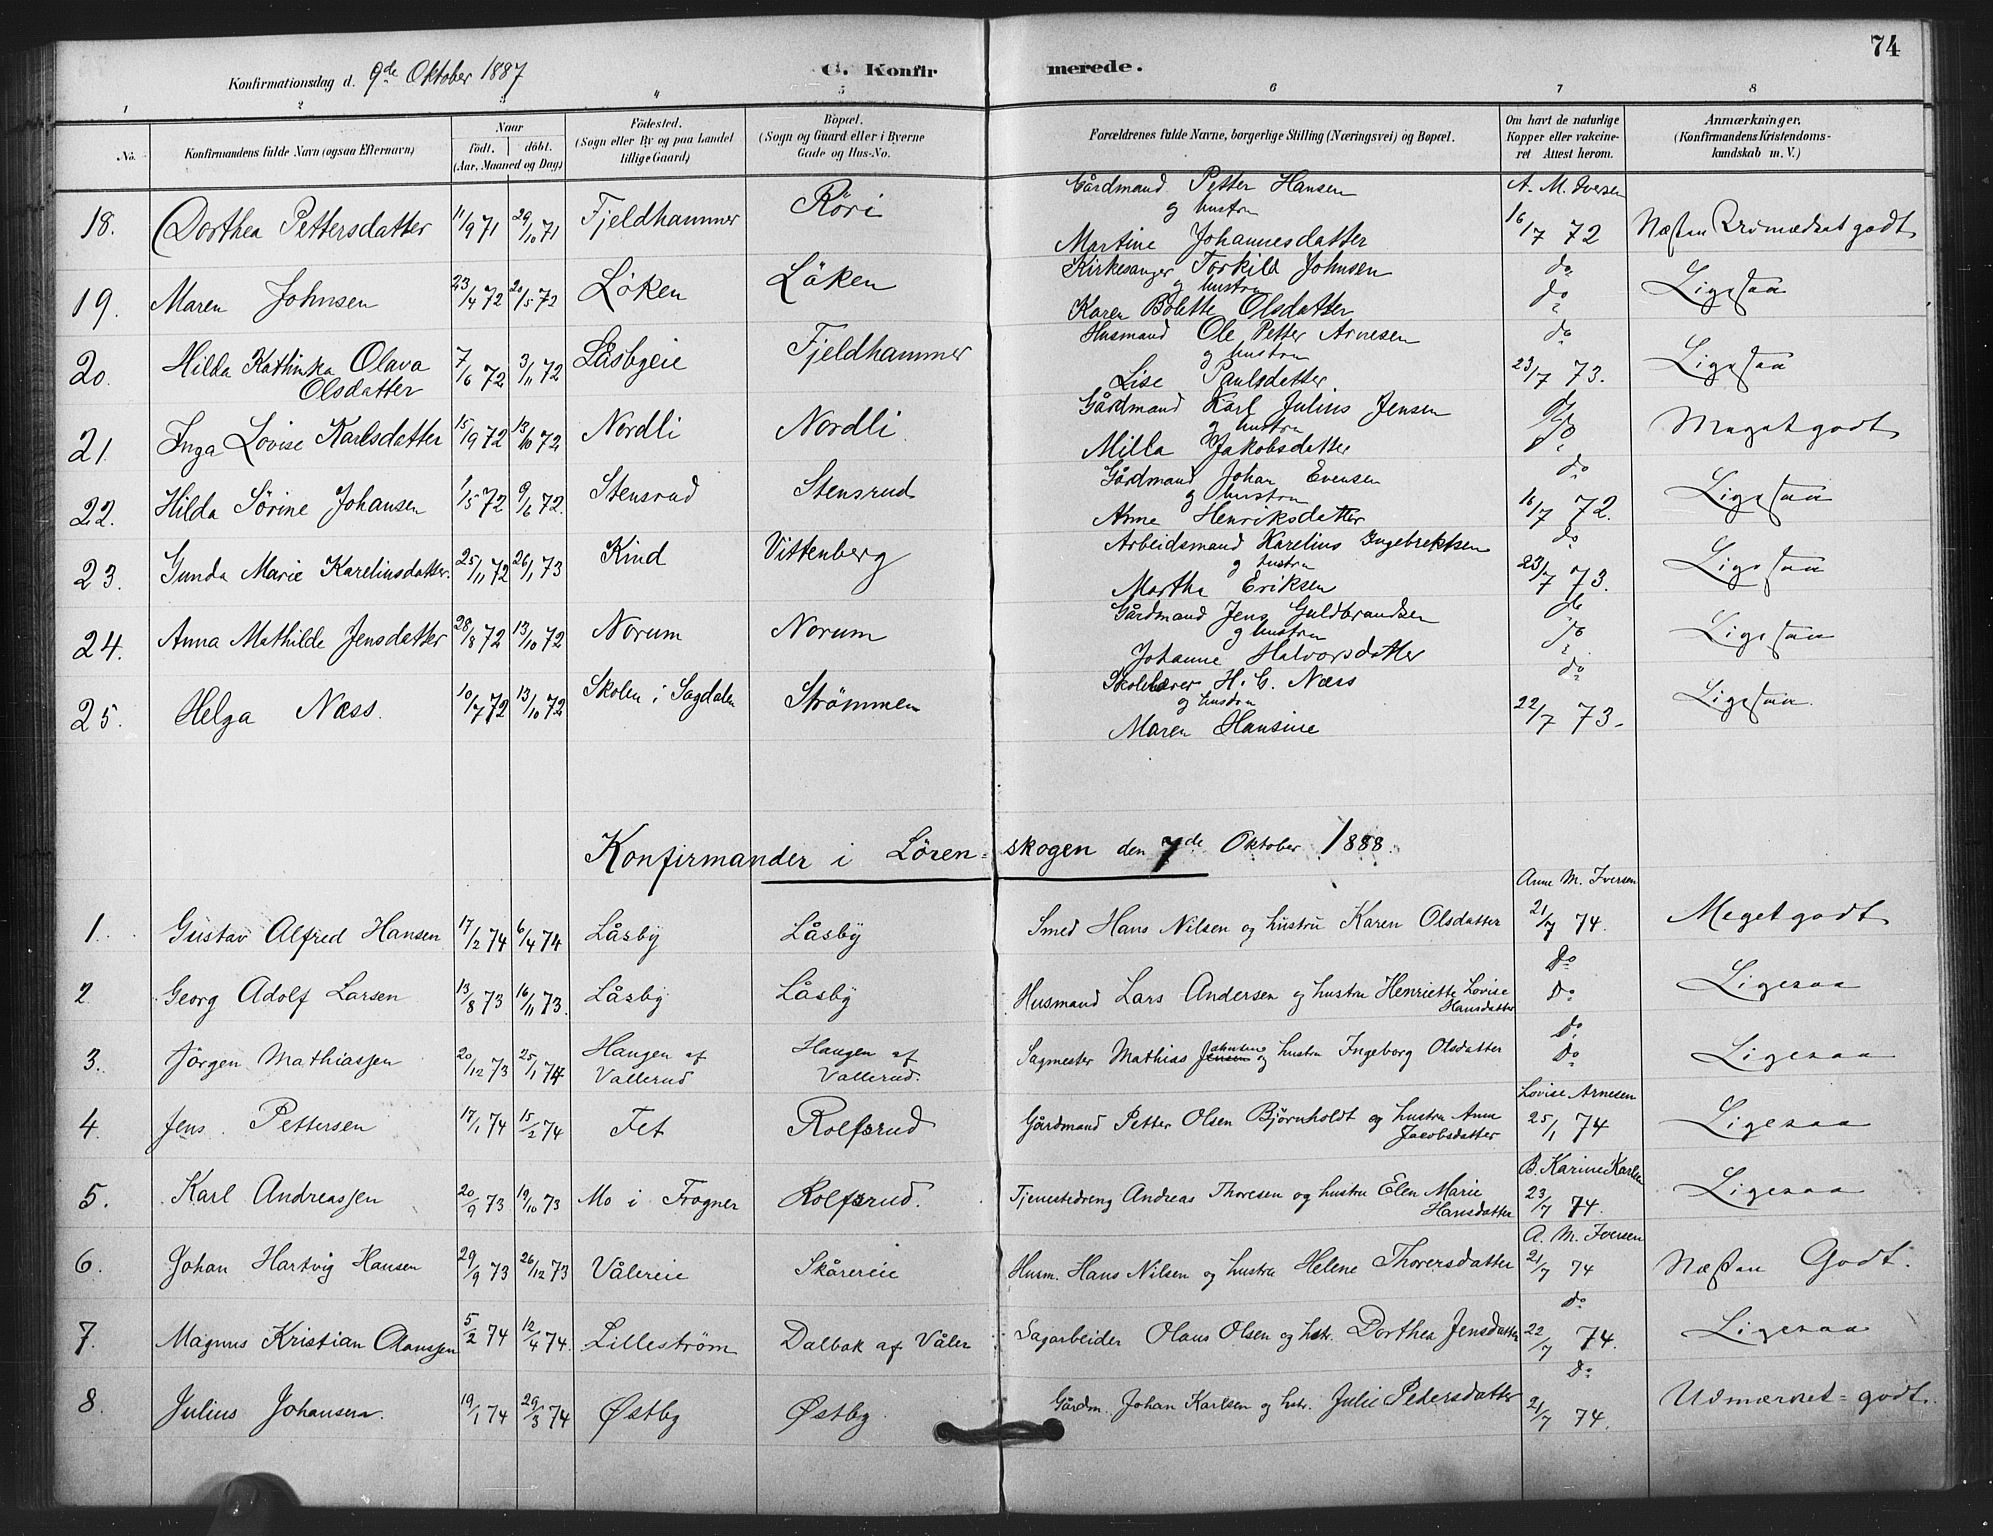 74
Konfirmationsdag d. 9de Oktober 1887
C. Konfir merede.
1 2 3 4 5 6 7 8
No. Konfirmandens fulde Navn (ogsaa Efternavn) Naar født. døbt. (Aar, Maaned og Dag) Fødested. (Sogn eller By og paa Landet tillige Gaard) Bopæl. (Sogn og Gaard eller i Byerne Gade og Hus-No. Forældrenes fulde Navne, borgerlige Stilling (Næringsvei) og Bopæl. Om havt de naturlige Kopper eller vakcineret Attest herom. Anmærkninger. (Konfirmandens Kristendomskundskab m. V.)
18. Dorthea Pettersdatter 11/9 71 29/10 71 Fjeldhammer Röri Gårdmand Petter Hansen og hustru Martine Johannesdatter A. M. Iversen 16/7 72 Næstan godt
19. Maren Johnsen 23/4 72 20/5 72 Løken Løken Kirkesanger Torkild Johnsen og hustru Karen Bolette Olsdatter do do Ligesaa
20. Hilda Kathinka Olava Olsdatter 7/6 72 3/11 72 Låsbyeie Fjeldhammer Husmand Ole Petter Arnesen og hustru Lise Paulsdatter do 23/7 73. Ligesaa
21. Inga Lovise Karlsdatter 15/9 72 13/10 72 Nordli Nordli Gårdmand Karl Julius Jensen og hustru Milla Jakobsdatter do do Meget godt
22. Hilda Sørine Johansen 1/5 72 9/6 72. Stensrud Stensrud Gårdmand Johan Evensen og hustru Anne Henriksdatter do 16/7 72. Ligesaa
23. Gunda Marie Kareliusdatter. 25/11 72 26/1 73 Kind Vittenberg Arbeidsmand Karelius Ingebrektsen og hustru Martha Eriksen do 23/7 73. Ligesaa
24. Anna Mathilde Jensdatter 28/8 72 13/10 72 Norum Norum Gårdmand Jens Guldbrandsen og hustru Johanne Halvorsdatter do do Ligesaa
25. Helga Næss. 10/7 72 13/10 72 Skolen i Sagdalen Strømmen Skolelærer H. C. Næss og hustru Maren Hansine do 22/7 73. Ligesaa.
Konfirmander i Lören=skogen den 7de Oktober 1888.
1. Gustav Alfred Hansen 17/2 74 6/4 74 Låsby Låsby Smed Hans Nilsen og hustru Karen Olsdatter Anne M. Iversen 21/7 74. Meget godt
2 Georg Adolf Larsen 13/8 73 16/11 73. Låsby Låsby Husmand Lars Andersen og hustru Henriette Lovise Hansdatter Do Do Ligesaa
3. Jörgen Mathiassen 20/12 73 25/1 74 Haugen af Vallerud Haugen af Vallerud. Sagmester Mathias Jensen og hustru Ingeborg Olsdatter Do Do Ligesaa
4. Jens Pettersen 17/1 74 15/2 74 Fet Rolfsrud Gårdmand Petter Olsen Bjørnholdt og hustru Anne Jacobsdatter Lovise Arnesen 25/1 74 Ligesaa
5. Karl Andreassen 20/9 73 19/10 73 Mo i Frogner Rolfsrud. Tjenestedreng Andreas Thoresen og hustru Elen Marie Hansdatter B. Karine Karlsen 23/7 74. Ligesaa
6. Johan Hartvig Hansen 29/9 73 26/12 73 Vålereie Skårereie Husm. Hans Nilsen og hustru Helene Thorersdatter A. M. Iversen 21/7 74 Næstan Godt.
7. Magnus Kristian Olaussen 5/2 74 12/4 74. Lilleström Dalbak af Våler Sagarbeider Olaus Olsen og hstr. Dorthea Jensdatter Do 22/7 74. Ligesaa
8. Julius Johansen. 19/1 74 29/3 74 Østby Østby. Gårdm. Johan Karlsen og hstr. Julie Pedersdatter Do 21/7 74. Udmærket=godt.